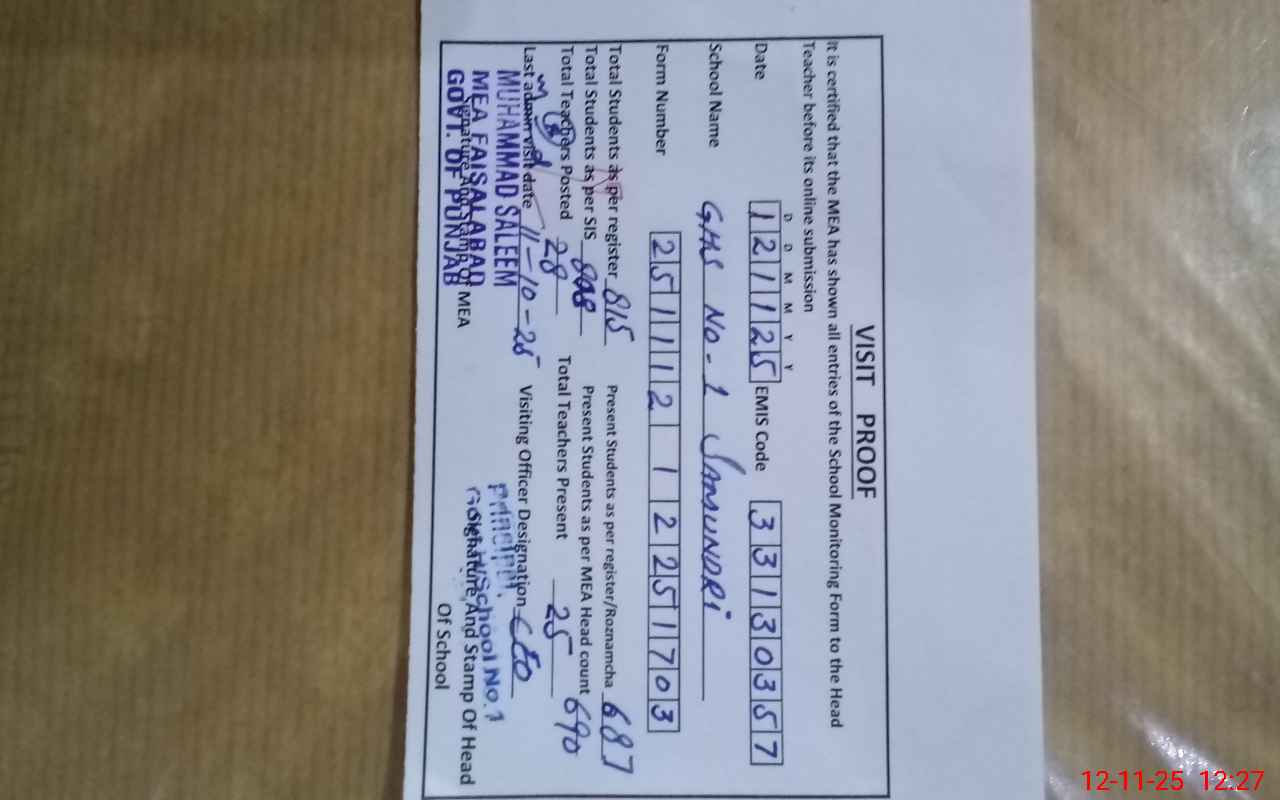 VISIT PROOF
It is certified that the MEA has shown all entries of the School Monitoring Form to the Head
Teacher before its online submission
D D M M Y Y
Date 121125 EMIS Code 33130357
School Name GHS No-1 SAMUNDRi
Form Number 2511121 2251703
Total Students as per register 815 Present Students as per register/Roznamcha 687
Total Students as per SIS 808 Present Students as per MEA Head count 690
Total Teachers Posted 28 Total Teachers Present 25
Last admin visit date 11-10-25 Visiting Officer Designation CEO
MUHAMMAD SALEEM
MEA FAISALABAD
GOVT. OF PUNJAB
Signature And Stamp Of MEA
Principal
School No.1
Signature And Stamp Of Head
Of School
12-11-25 12:27